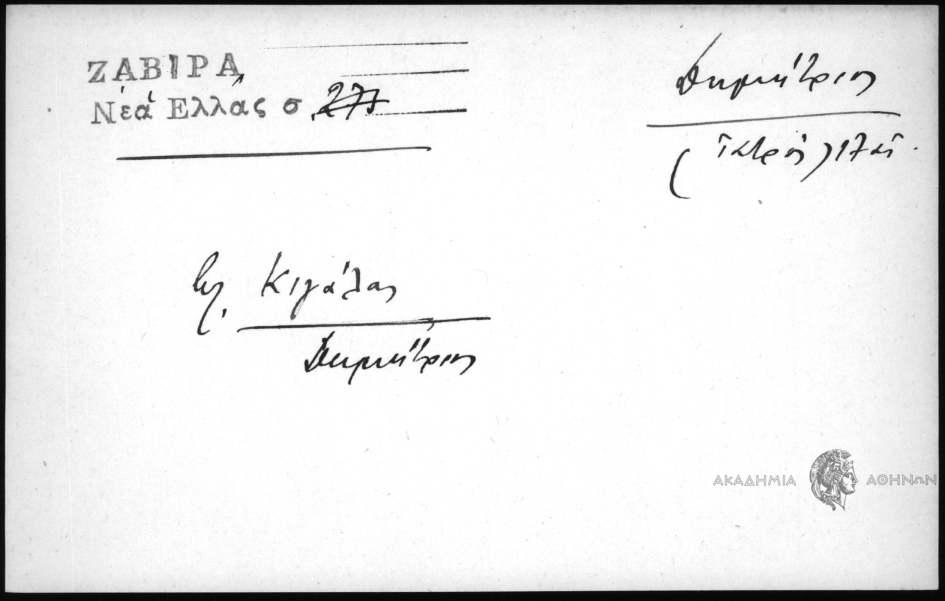 ΖΑΒΙΡΑ
Νέα Ελλάς σ. 277
Δημήτριος
(ἰατρός)
Κιγάλας
Δημήτριος
ΑΚΑΔΗΜΙΑ ΑΘΗΝΩΝ